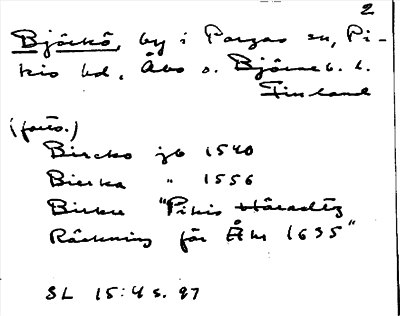 2
Björkö, by i Pargas sn, Pi-
kis hd, Åbo o. Björneb. l.
Finland
(forts.)
Bircko jb 1540
Bierka " 1556
Birkö "Pikis Häradtz
Räckning för Åhr 1635"
SL 15:4 s. 97